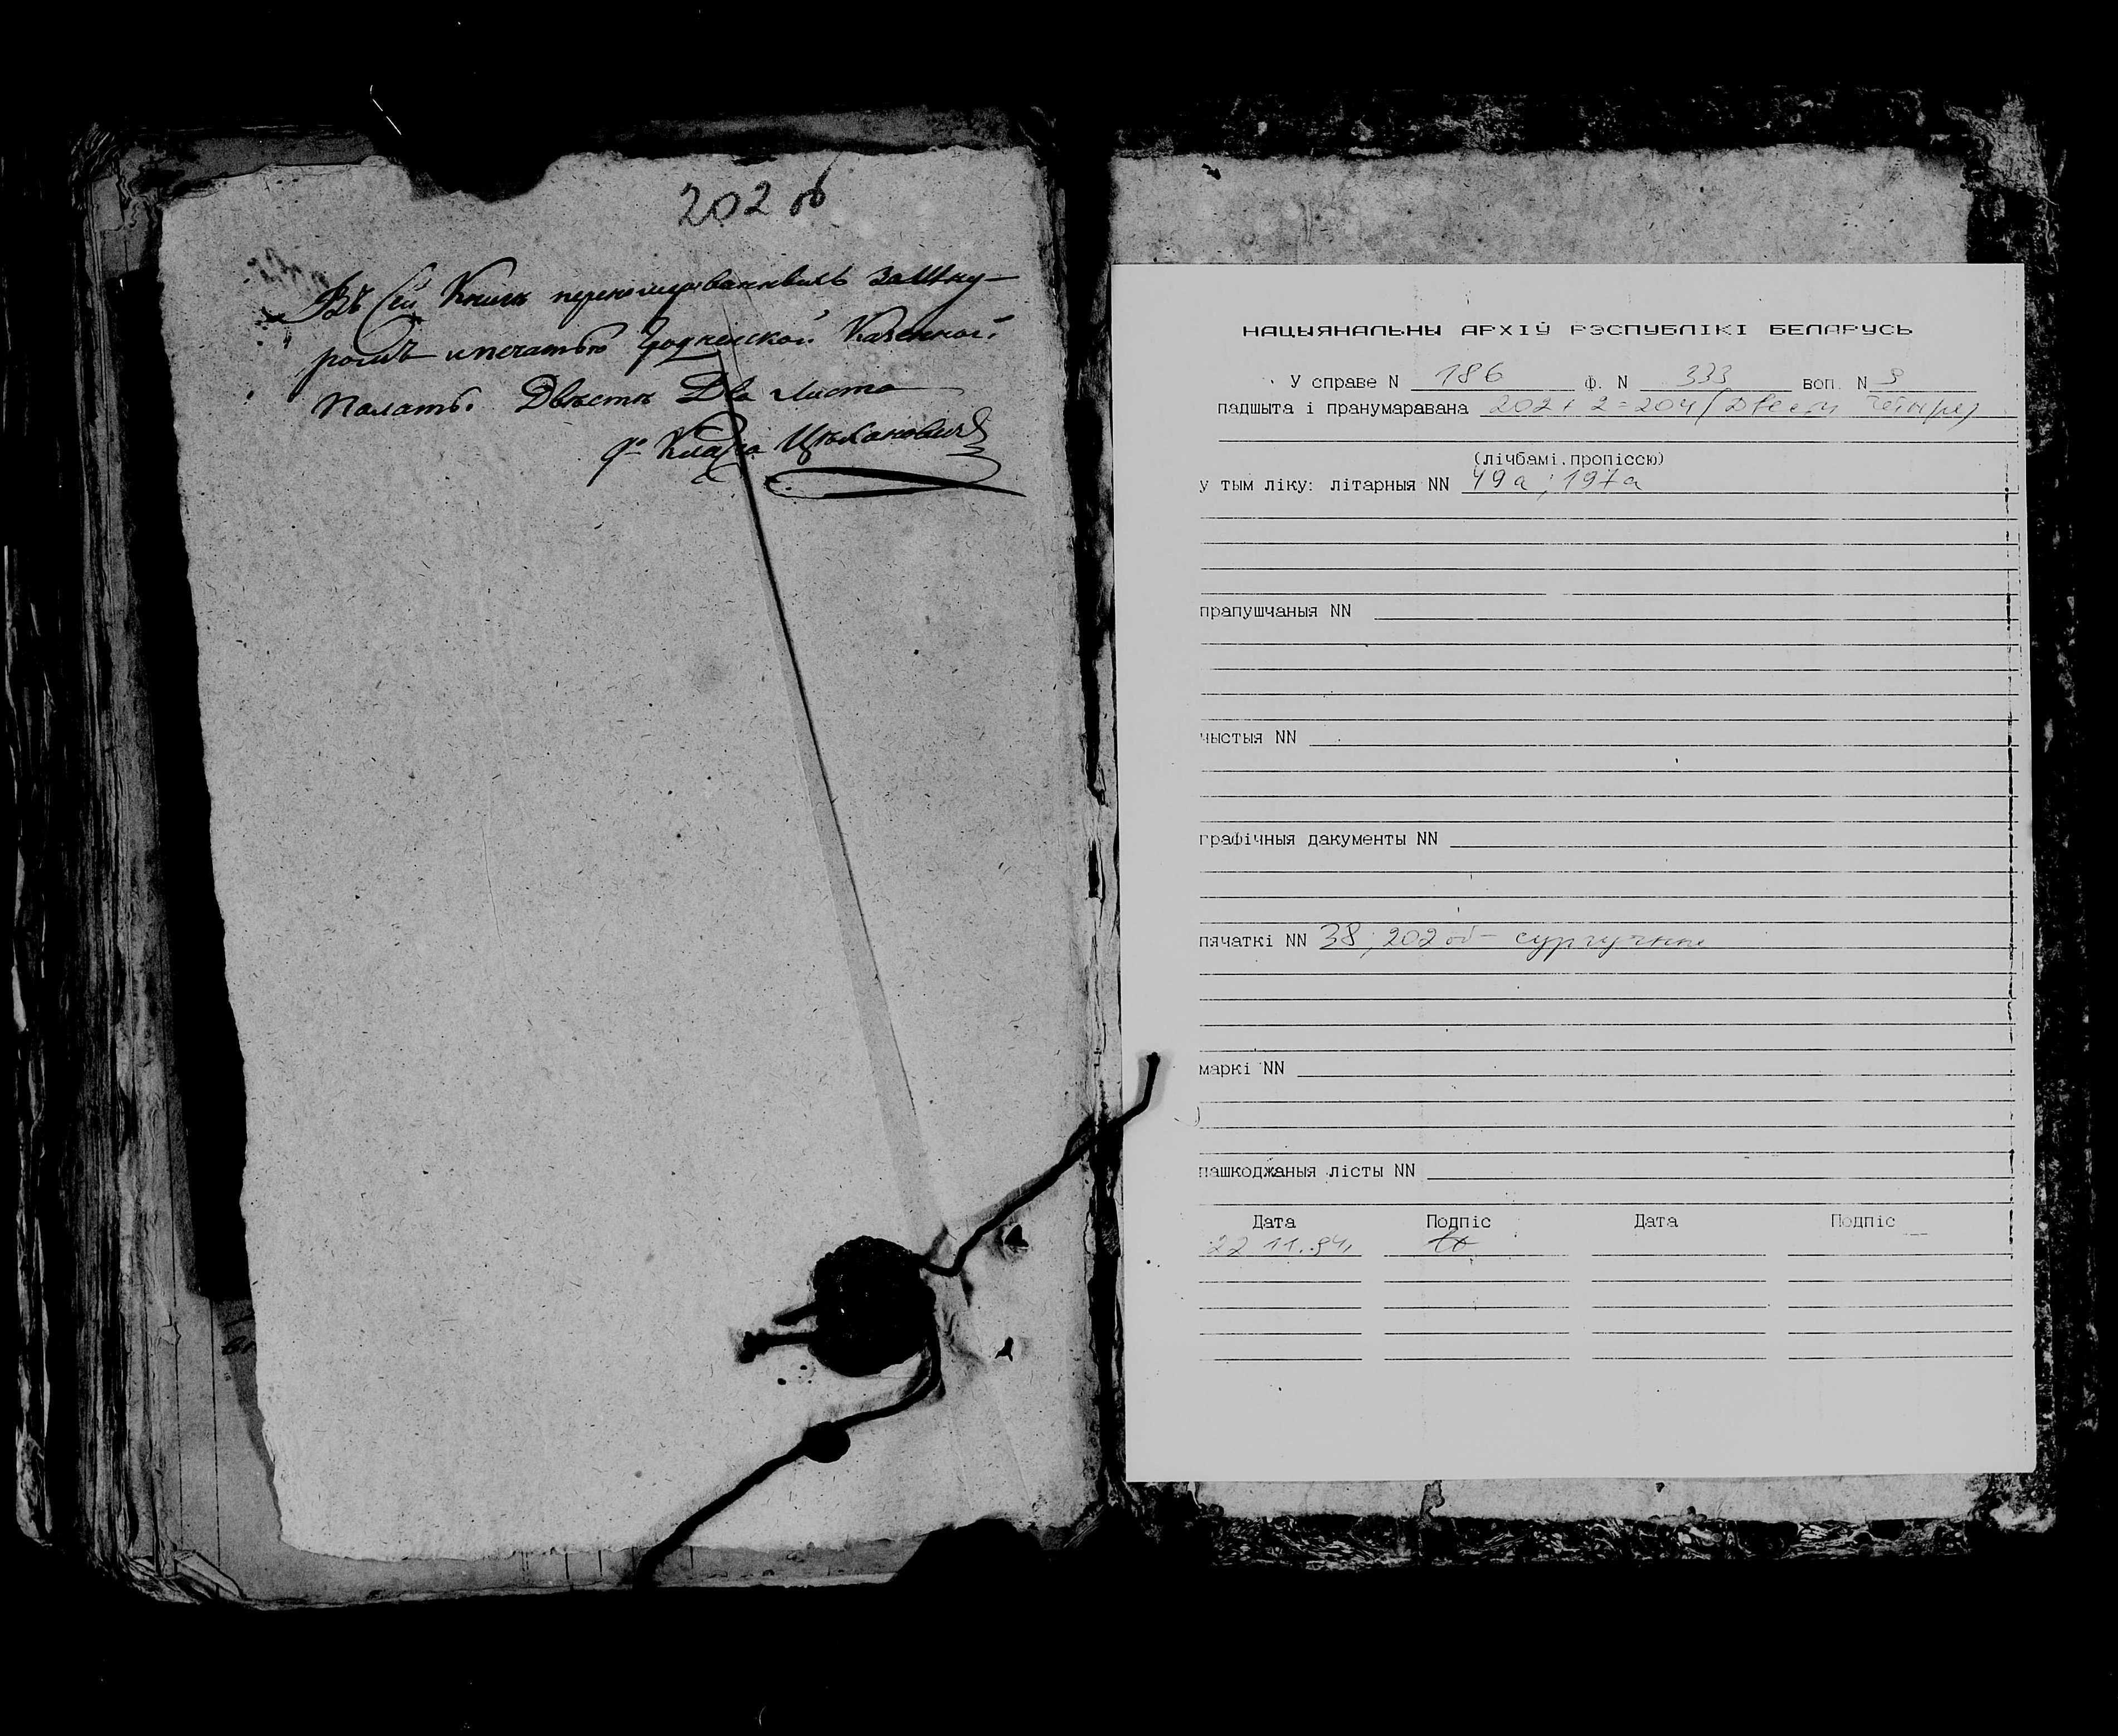 202 об
Въ сей Книгѣ перенумерованныхъ за Шну-
ромъ и печатью Гродненской Казенной
Палаты. Двѣстѣ Два листа
НАЦЫЯНАЛЬНЫ АРХІЎ РЭСПУБЛІКІ БЕЛАРУСЬ
У справе N 186 Ф. N 333 воп. N 9
падшыта і пранумаравана 202+2=204 (двести четыре)
(лічбамі.пропіссю)
у тым ліку: літарныя NN 49а; 197а
прапушчаныя NN
чыстыя NN
графічныя дакументы NN
пячаткі NN 38; 202 об - сургучные
маркі NN
пашкоджаныя лісты NN
Дата Подпіс Дата Подпіс
22 11.94.